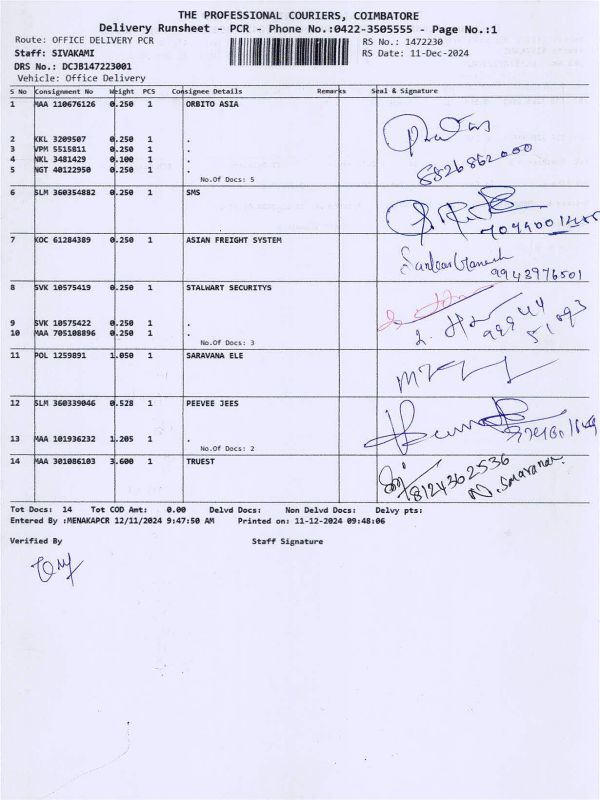 THE PROFESSIONAL COURIERS, COIMBATORE
Delivery Runsheet - PCR - Phone No.:0422-3505555 - Page No.:1
Route: OFFICE DELIVERY PCR RS No.: 1472230
Staff: SIVAKAMI RS Date: 11-Dec-2024
DRS No.: DCJB147223001
Vehicle: Office Delivery
S No Consignment No Weight PCS Consignee Details Remarks Seal & Signature
1 MAA 110676126 0.250 1 ORBITO ASIA
2 KKL 3209507 0.250 1 .
3 VPM 5515811 0.250 1 .
4 NKL 3481429 0.100 1 .
5 NGT 40122950 0.250 1 .
No.Of Docs: 5
8826862000
6 SLM 360354882 0.250 1 SMS
7 KOC 61284389 0.250 1 ASIAN FREIGHT SYSTEM
9943976501
8 SVK 10575419 0.250 1 STALWART SECURITYS
9 SVK 10575422 0.250 1 .
10 MAA 705108896 0.250 1 .
No.Of Docs: 3
11 POL 1259891 1.050 1 SARAVANA ELE
12 SLM 360339046 0.528 1 PEEVEE JEES
13 MAA 101936232 1.205 1 .
No.Of Docs: 2
14 MAA 301086103 3.600 1 TRUEST
8124362536
Tot Docs: 14 Tot COD Amt: 0.00 Delvd Docs: Non Delvd Docs: Delvy pts:
Entered By :MENAKAPCR 12/11/2024 9:47:50 AM Printed on: 11-12-2024 09:48:06
Verified By Staff Signature